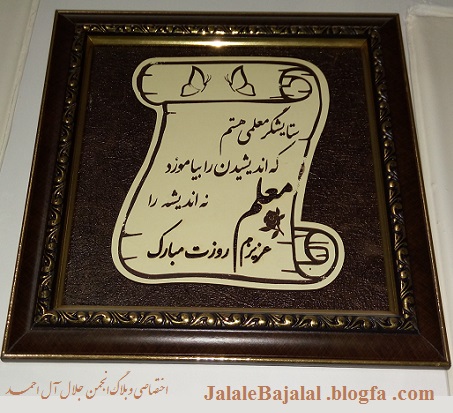 ستایشگر معلمی هستم
که اندیشیدن را بیاموزد
نه اندیشه را
معلم
عزیزم روزت مبارک
اختصاصی وبلاگ انجمن جلال آل احمد
JalaleBajalal .blogfa .com